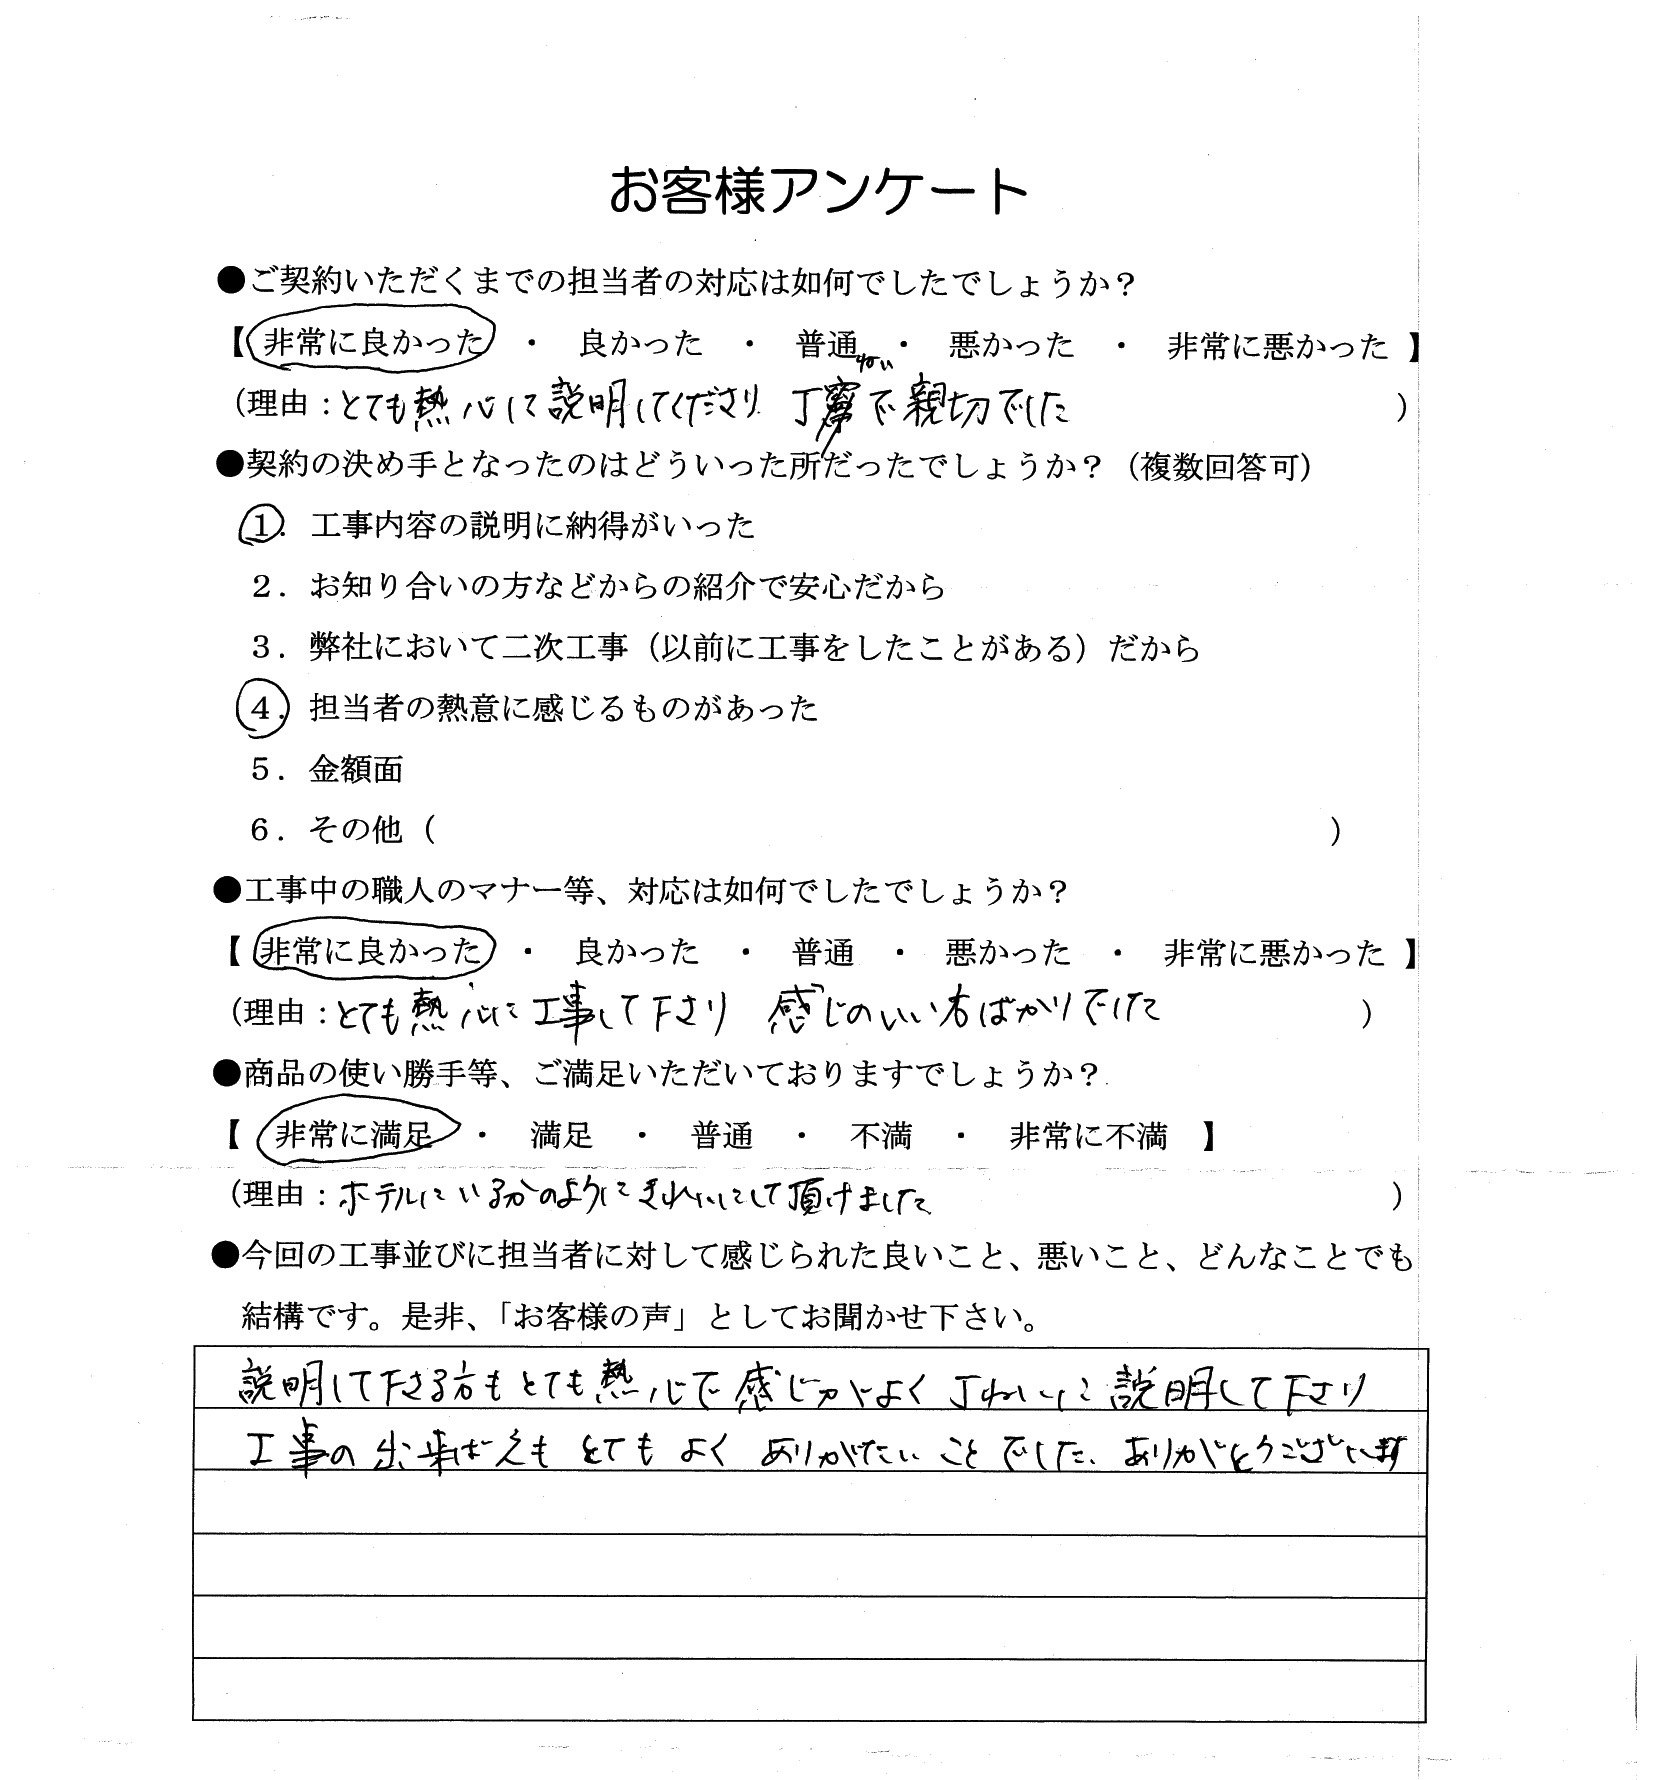 お客様アンケート
●ご契約いただくまでの担当者の対応は如何でしたでしょうか？
【非常に良かった ・ 良かった ・ 普通 ・ 悪かった ・ 非常に悪かった】
ねい
（理由：とても熱心して説明してくださり 丁寧で親切でした ）
●契約の決め手となったのはどういった所だったでしょうか？（複数回答可）
1．工事内容の説明に納得がいった
2．お知り合いの方などからの紹介で安心だから
3．弊社において二次工事（以前に工事をしたことがある）だから
4．担当者の熱意に感じるものがあった
5．金額面
6．その他（ ）
●工事中の職人のマナー等、対応は如何でしたでしょうか？
【非常に良かった ・ 良かった ・ 普通 ・ 悪かった ・ 非常に悪かった】
（理由：とても熱心に工事して下さり 感じのいい方ばかりでした ）
●商品の使い勝手等、ご満足いただいておりますでしょうか？
【 非常に満足 ・ 満足 ・ 普通 ・ 不満 ・ 非常に不満 】
（理由：ホテルにいるかのようにきれいにして頂けました ）
●今回の工事並びに担当者に対して感じられた良いこと、悪いこと、どんなことでも
結構です。是非、「お客様の声」としてお聞かせ下さい。
説明して下さる方もとても熱心で感じがよく丁ねいに説明して下さり
工事の出来ばえもとてもよくありがたいことでした、ありがとうございます